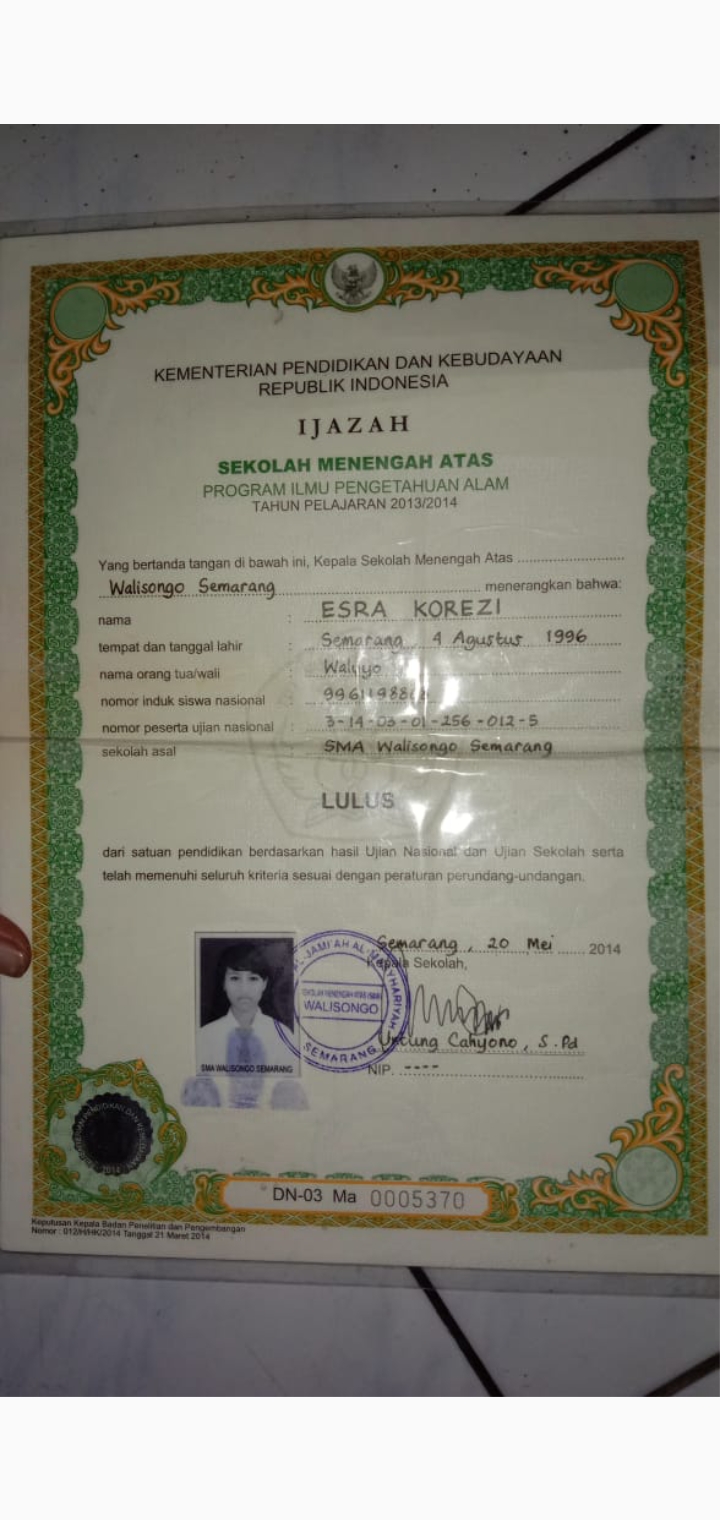 KEMENTERIAN PENDIDIKAN DAN KEBUDAYAAN
REPUBLIK INDONESIA
IJAZAH
SEKOLAH MENENGAH ATAS
PROGRAM ILMU PENGETAHUAN ALAM
TAHUN PELAJARAN 2013/2014
Yang bertanda tangan di bawah ini, Kepala Sekolah Menengah Atas
Walisongo Semarang menerangkan bahwa:
nama : ESRA KOREZI
tempat dan tanggal lahir : Semarang, 4 Agustus 1996
nama orang tua/wali : Waluyo
nomor induk siswa nasional :
nomor peserta ujian nasional : 3-14-03-01-256-012-5
sekolah asal : SMA Walisongo Semarang
LULUS
dari satuan pendidikan berdasarkan hasil Ujian Nasional dan Ujian Sekolah serta
telah memenuhi seluruh kriteria sesuai dengan peraturan perundang-undangan.
Semarang, 20 Mei 2014
Kepala Sekolah,
WALISONGO
SEMARANG
Untung Cahyono, S.Pd
NIP. ----
SMA WALISONGO SEMARANG
2014
DN-03 Ma 0005370
Keputusan Kepala Badan Penelitian dan Pengembangan
Nomor : 012/H/HK/2014 Tanggal 21 Maret 2014